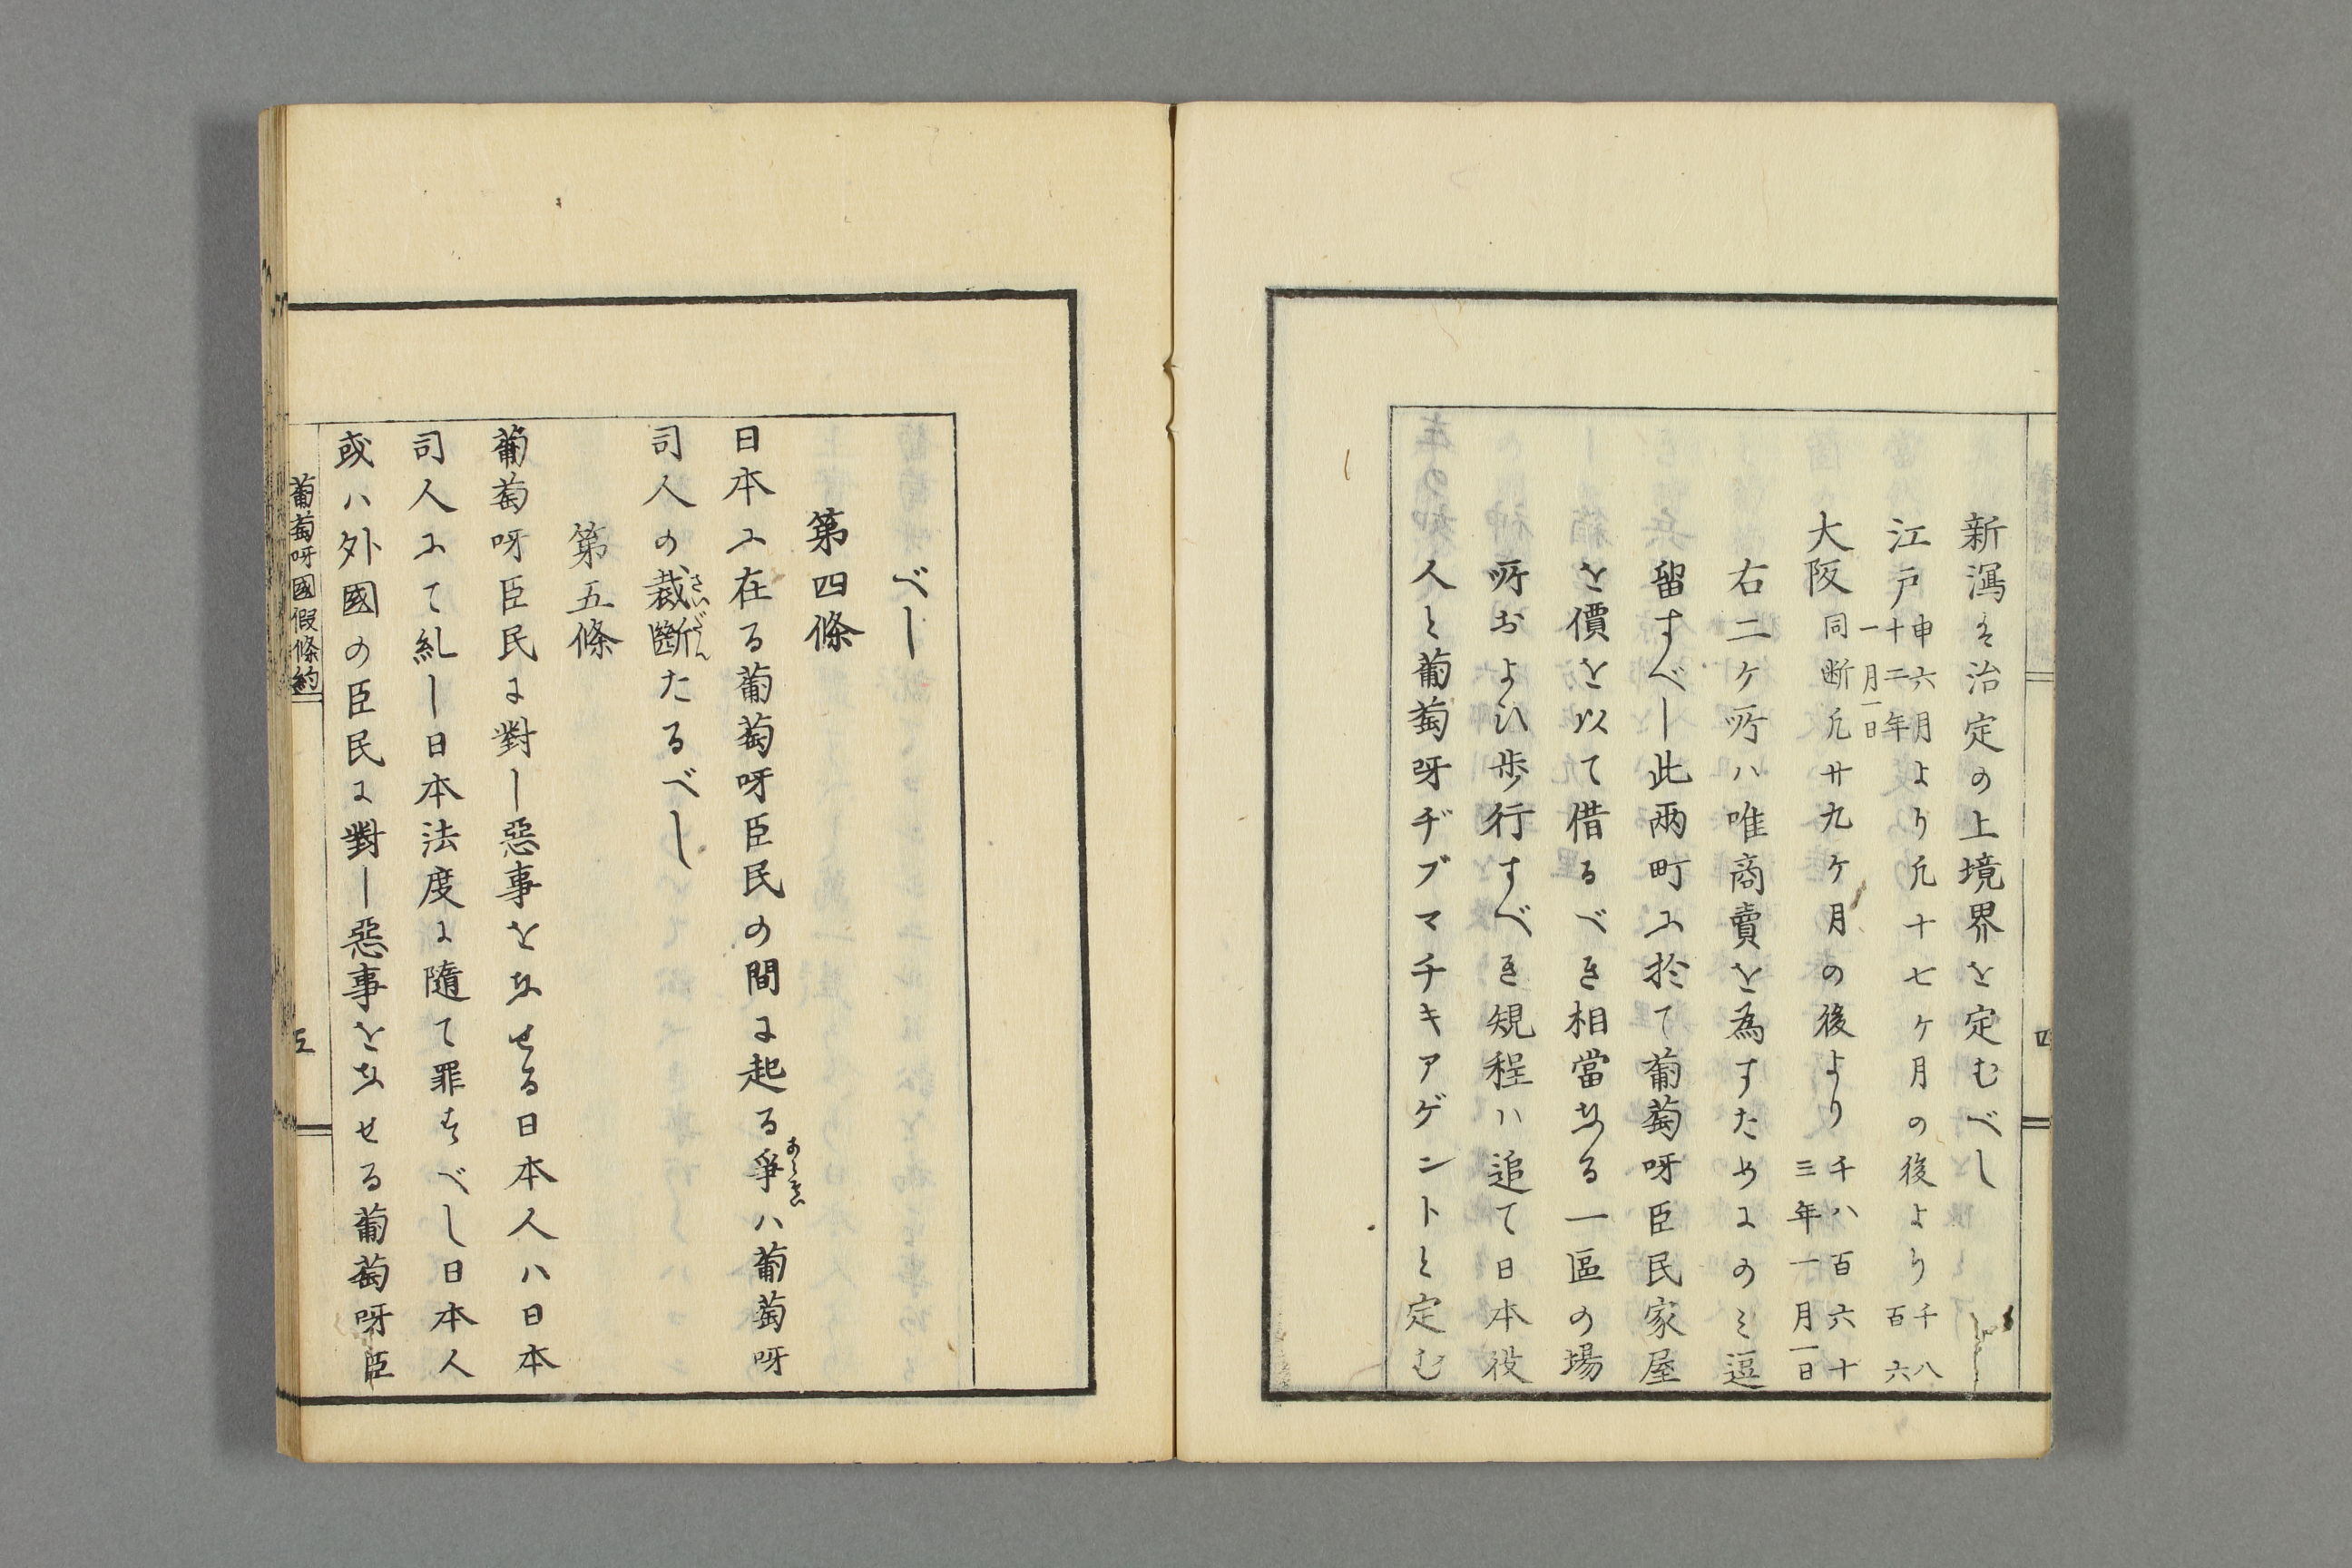 新瀉は治定の上境界を定むべし
江戸申六月より凡十七ヶ月の後より千八百六
十二年一月一日
大阪同断凡廿九ヶ月の後より千八百六十三年一月一日
右二ヶ所ハ唯商賣を為すためにのミ逗
留すべし此兩町に於て葡萄呀臣民家屋
を價を以て借るべき相當なる一區の場
所および歩行すべき規程ハ追て日本役
人と葡萄呀ヂプマチキアゲントと定む
四
べし
第四條
日本に在る葡萄呀臣民の間に起る爭あらそひハ葡萄呀
司人の裁斷さいだんたるべし
第五條
葡萄呀臣民に對し惡事をなせる日本人ハ日本
司人にて糺し日本法度に隨て罪すべし日本人
或ハ外國の臣民に對し惡事をなせる葡萄呀臣
葡萄呀國假條約
五